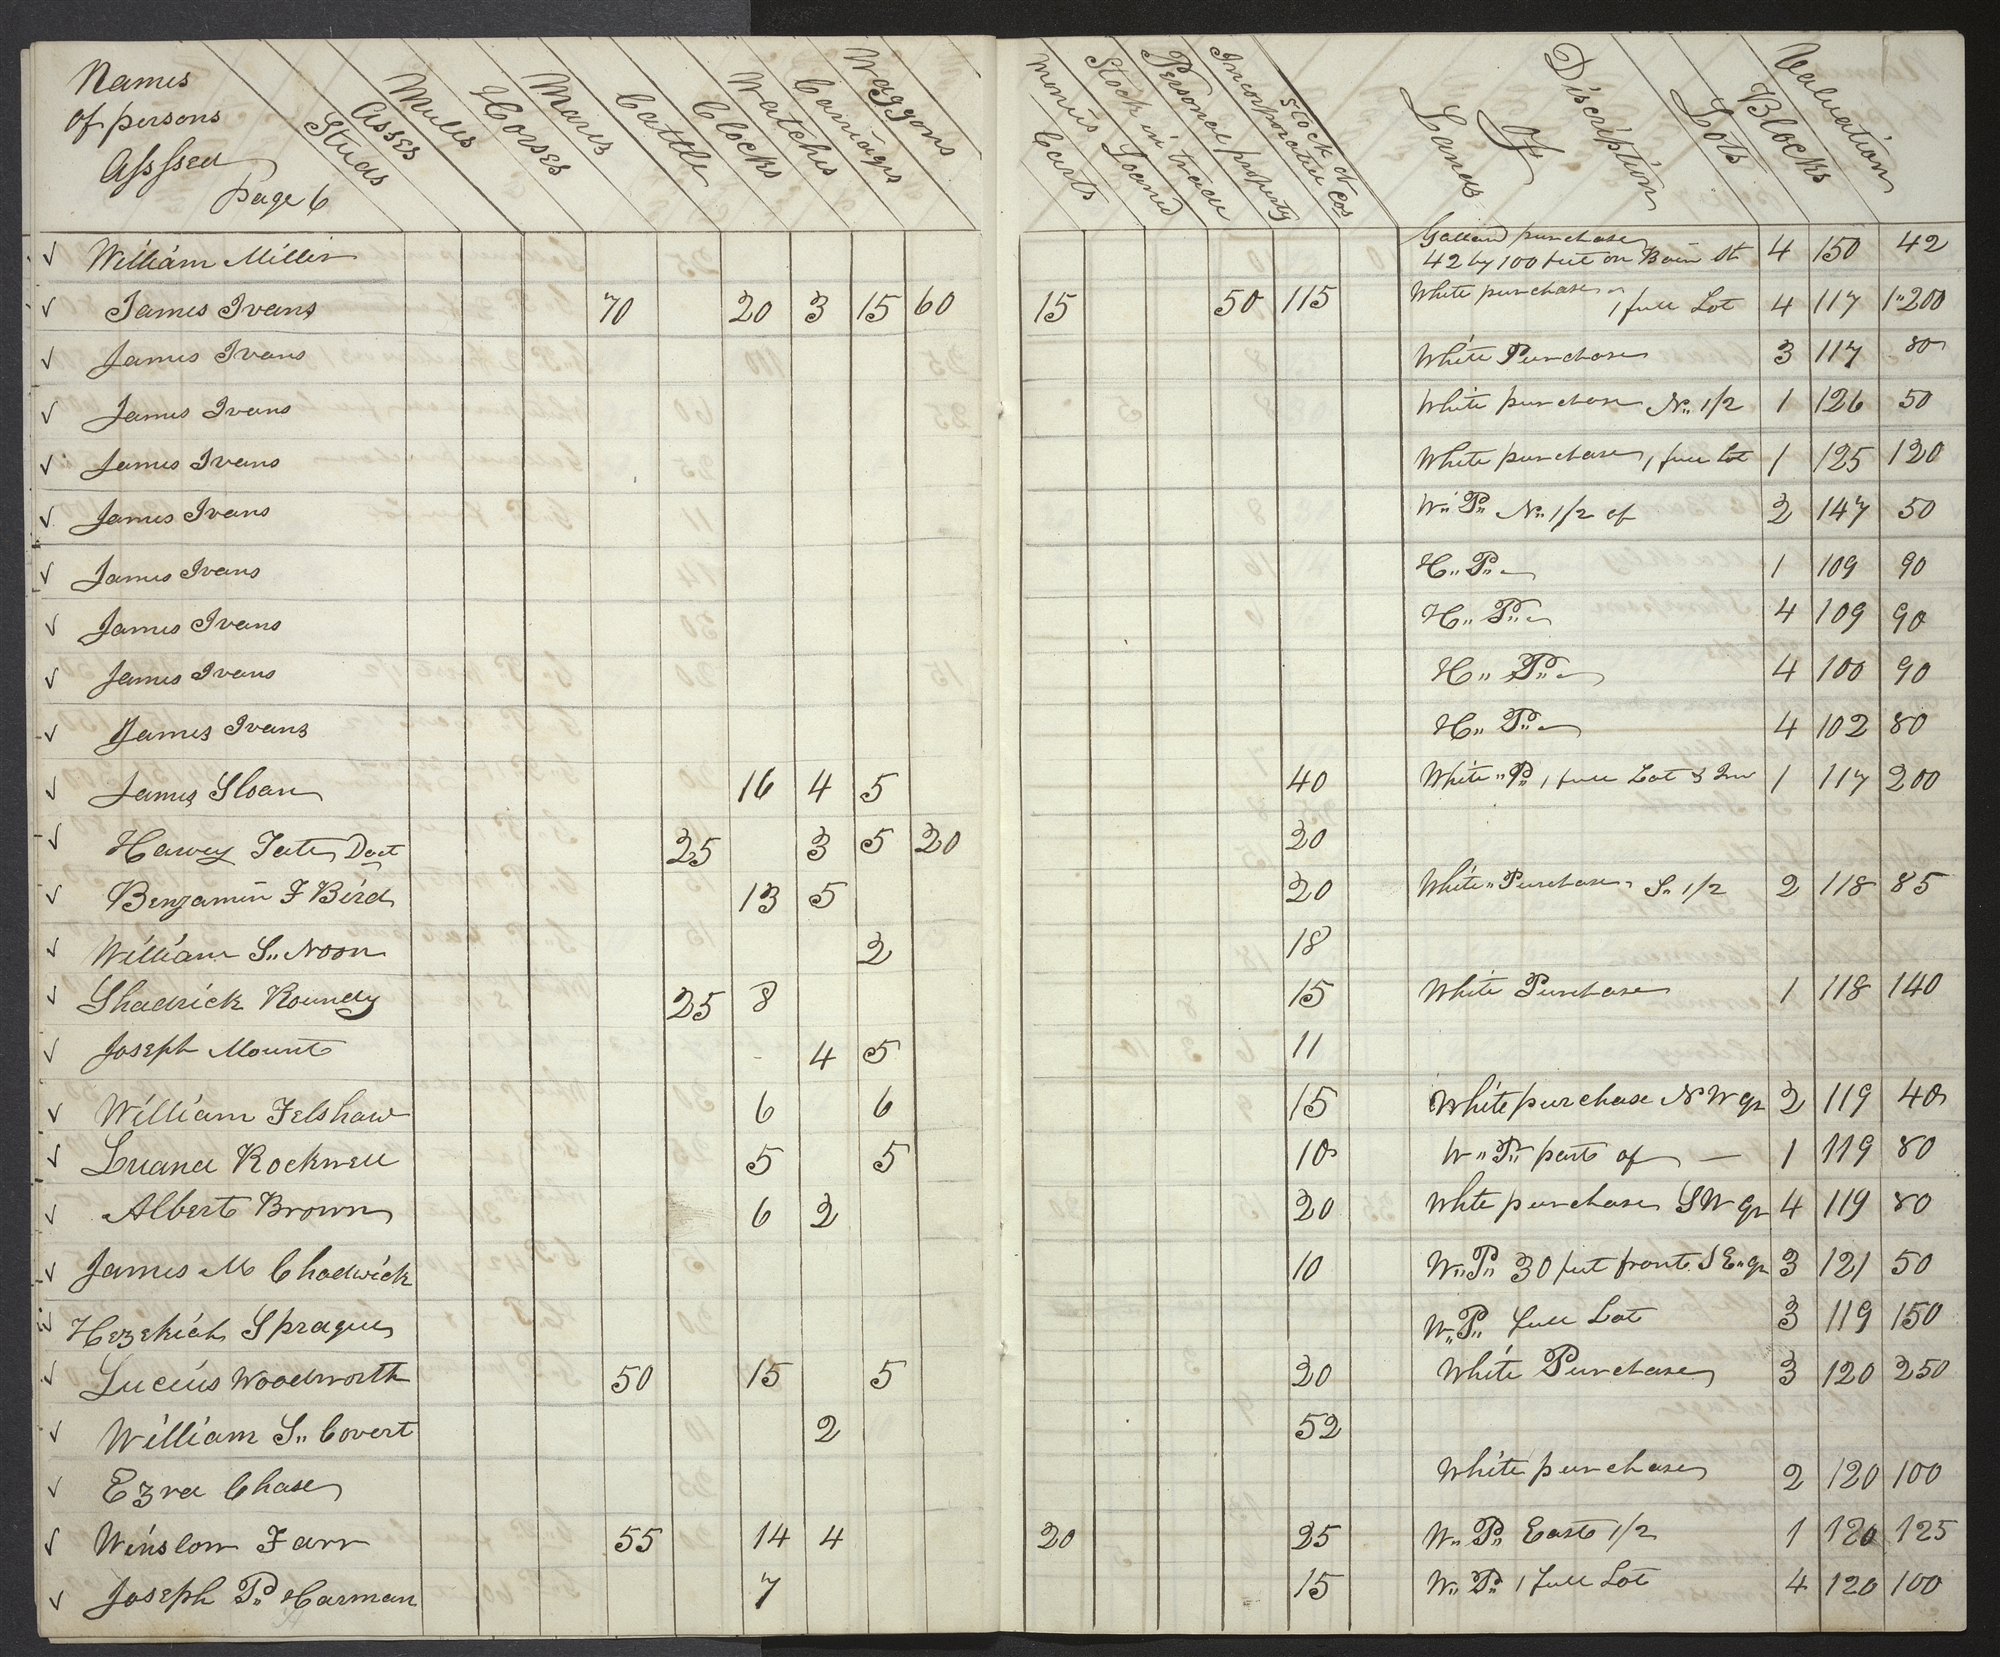 Names
of persons
Asssed
Page 6
Studs
Asses
Mules
Horses
Mares
Cattle
Clocks
Watches
Carriages
Waggons
Carts
Monies Loaned
Stock in trade
Personal property
Stock of
Incorporated Cos
Discription
Of
Lands
Lots
Blocks
Valuation
√ William Miller Galland purchase
42 by 100 feet on Bain St 4 150 42
√ James Ivans 70 20 3 15 60 15 50 115 White purchase
1 full Lot 4 117 1"200
√ James Ivans White Purchase 3 117 80
√ James Ivans White purchase N" 1/2 1 126 50
√ James Ivans White purchase 1 full lot 1 125 120
√ James Ivans W" P" N" 1/2 of 2 147 50
√ James Ivans H" P" 1 109 90
√ James Ivans H" P" 4 109 90
√ James Ivans H" P" 4 100 90
√ James Ivans H" P" 4 102 80
√ James Sloan 16 4 5 40 White "P" 1 full Lot & Im 1 117 200
√ Harvey Tate Doct 25 3 5 20 20
√ Benjamin F Bird 13 5 20 White "Purchase" S" 1/2 2 118 85
√ William S" Noon 2 18
√ Shadrick Roundy 25 8 15 White Purchase 1 118 140
√ Joseph Mount 4 5 11
√ William Felshaw 6 6 15 White purchase N W qr 2 119 40
√ Luana Rockwell 5 5 10 W" P" part of — 1 119 80
√ Albert Brown 6 2 20 Whte purchase S W qr 4 119 80
√ James M Chadwick 10 W" P" 30 feet front S E" qr 3 121 50
√ Hezekiah Sprague W" P" full Lot 3 119 150
√ Lucius Woodworth 50 15 5 20 White Purchase 3 120 250
√ William S" Covert 2 52
√ Ezra Chase White purchase 2 120 100
√ Winslow Farr 55 14 4 20 25 W" P" East 1/2 1 120 125
√ Joseph P" Harman 7 15 W" P" 1 full Lot 4 120 100